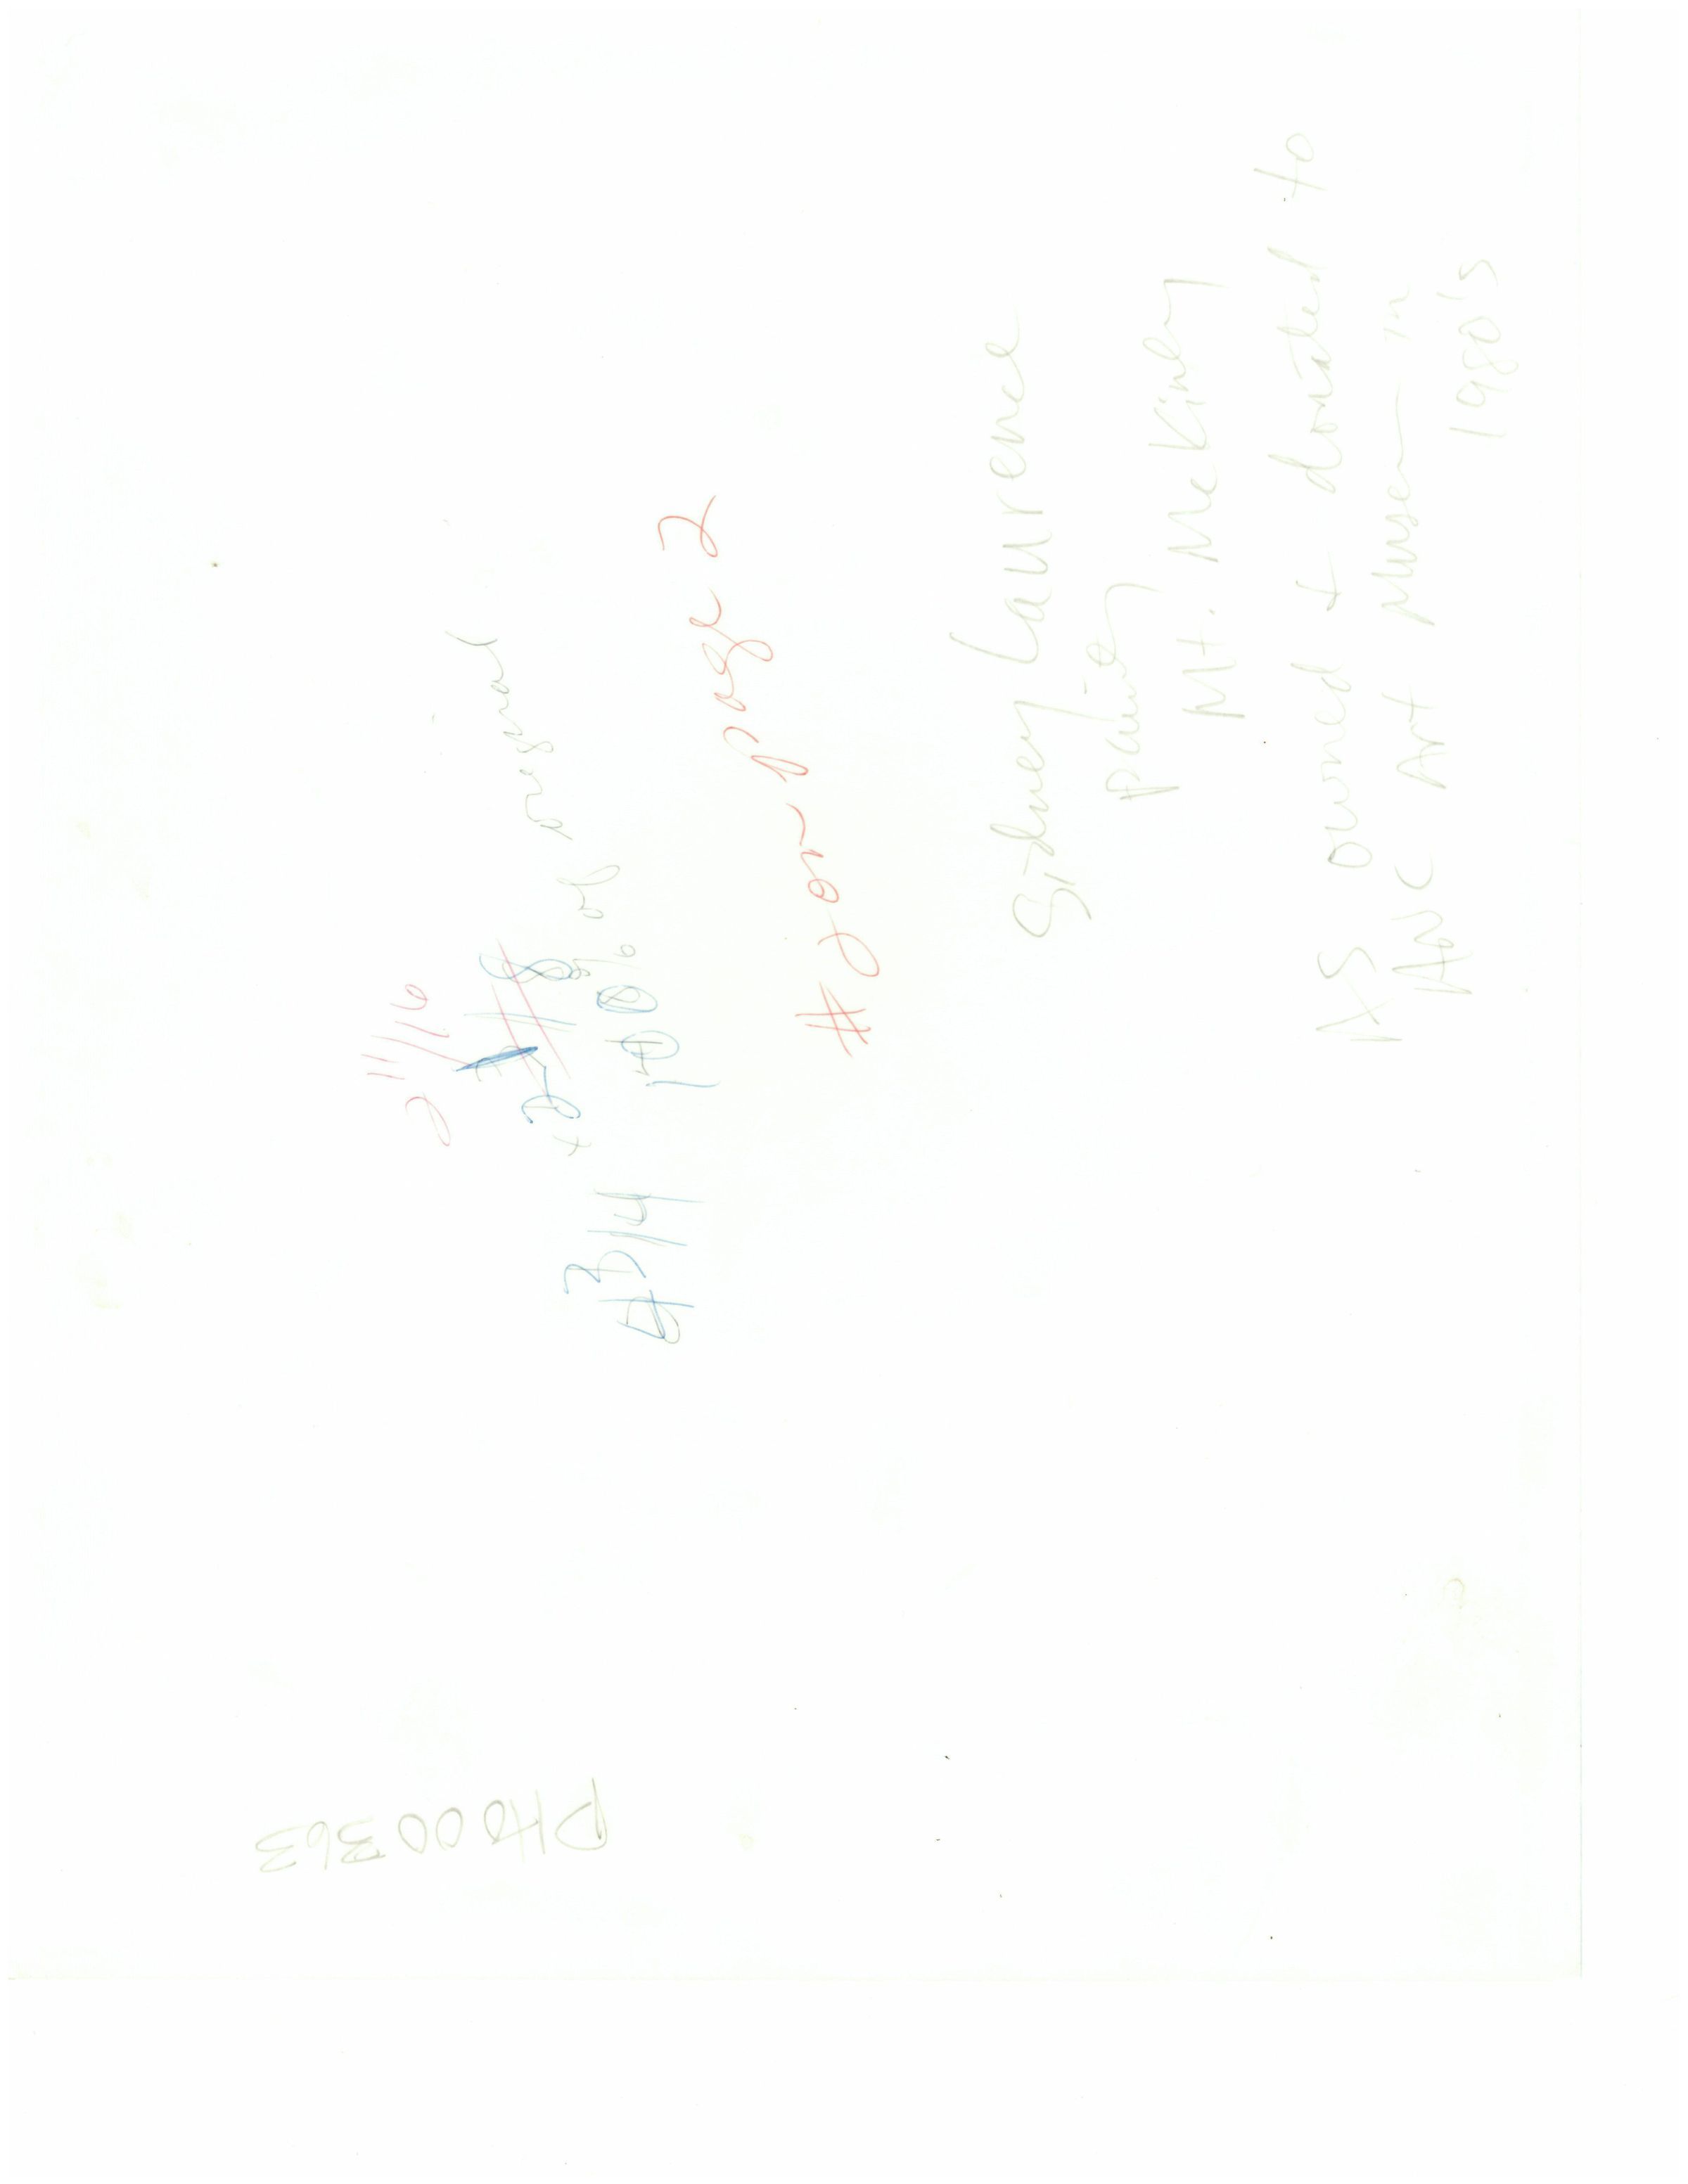 2 11/16
#8
% of original
100
4 3/4
# 2 on page 2
Sidney Laurence
painting
Mt. McKinley
AS owned + donated to
ANC Art Museum in
1980's
PH000363